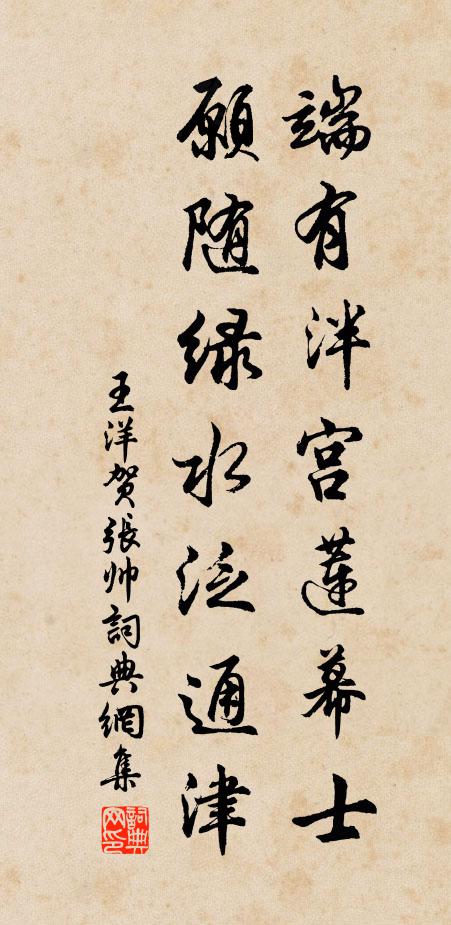 端有泮宫蓮幕士
願随緑水泛通津
王洋賀張帅詞典網集
詞典网印